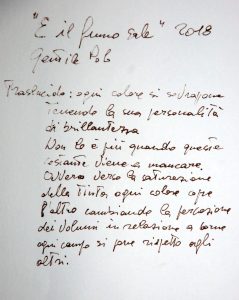 "E il fumo sale" 2018
Gentile Polo
Traslucido: ogni colore si sovrappone
tenendo la sua personalità
di brillantezza
Non lo è più quando queste
costante viene a mancare.
Ovvero verso la saturazione
della tinta, ogni colore copre
l'altro cambiando la percezione
dei volumi in relazione a come
ogni campo si pone rispetto agli
altri.